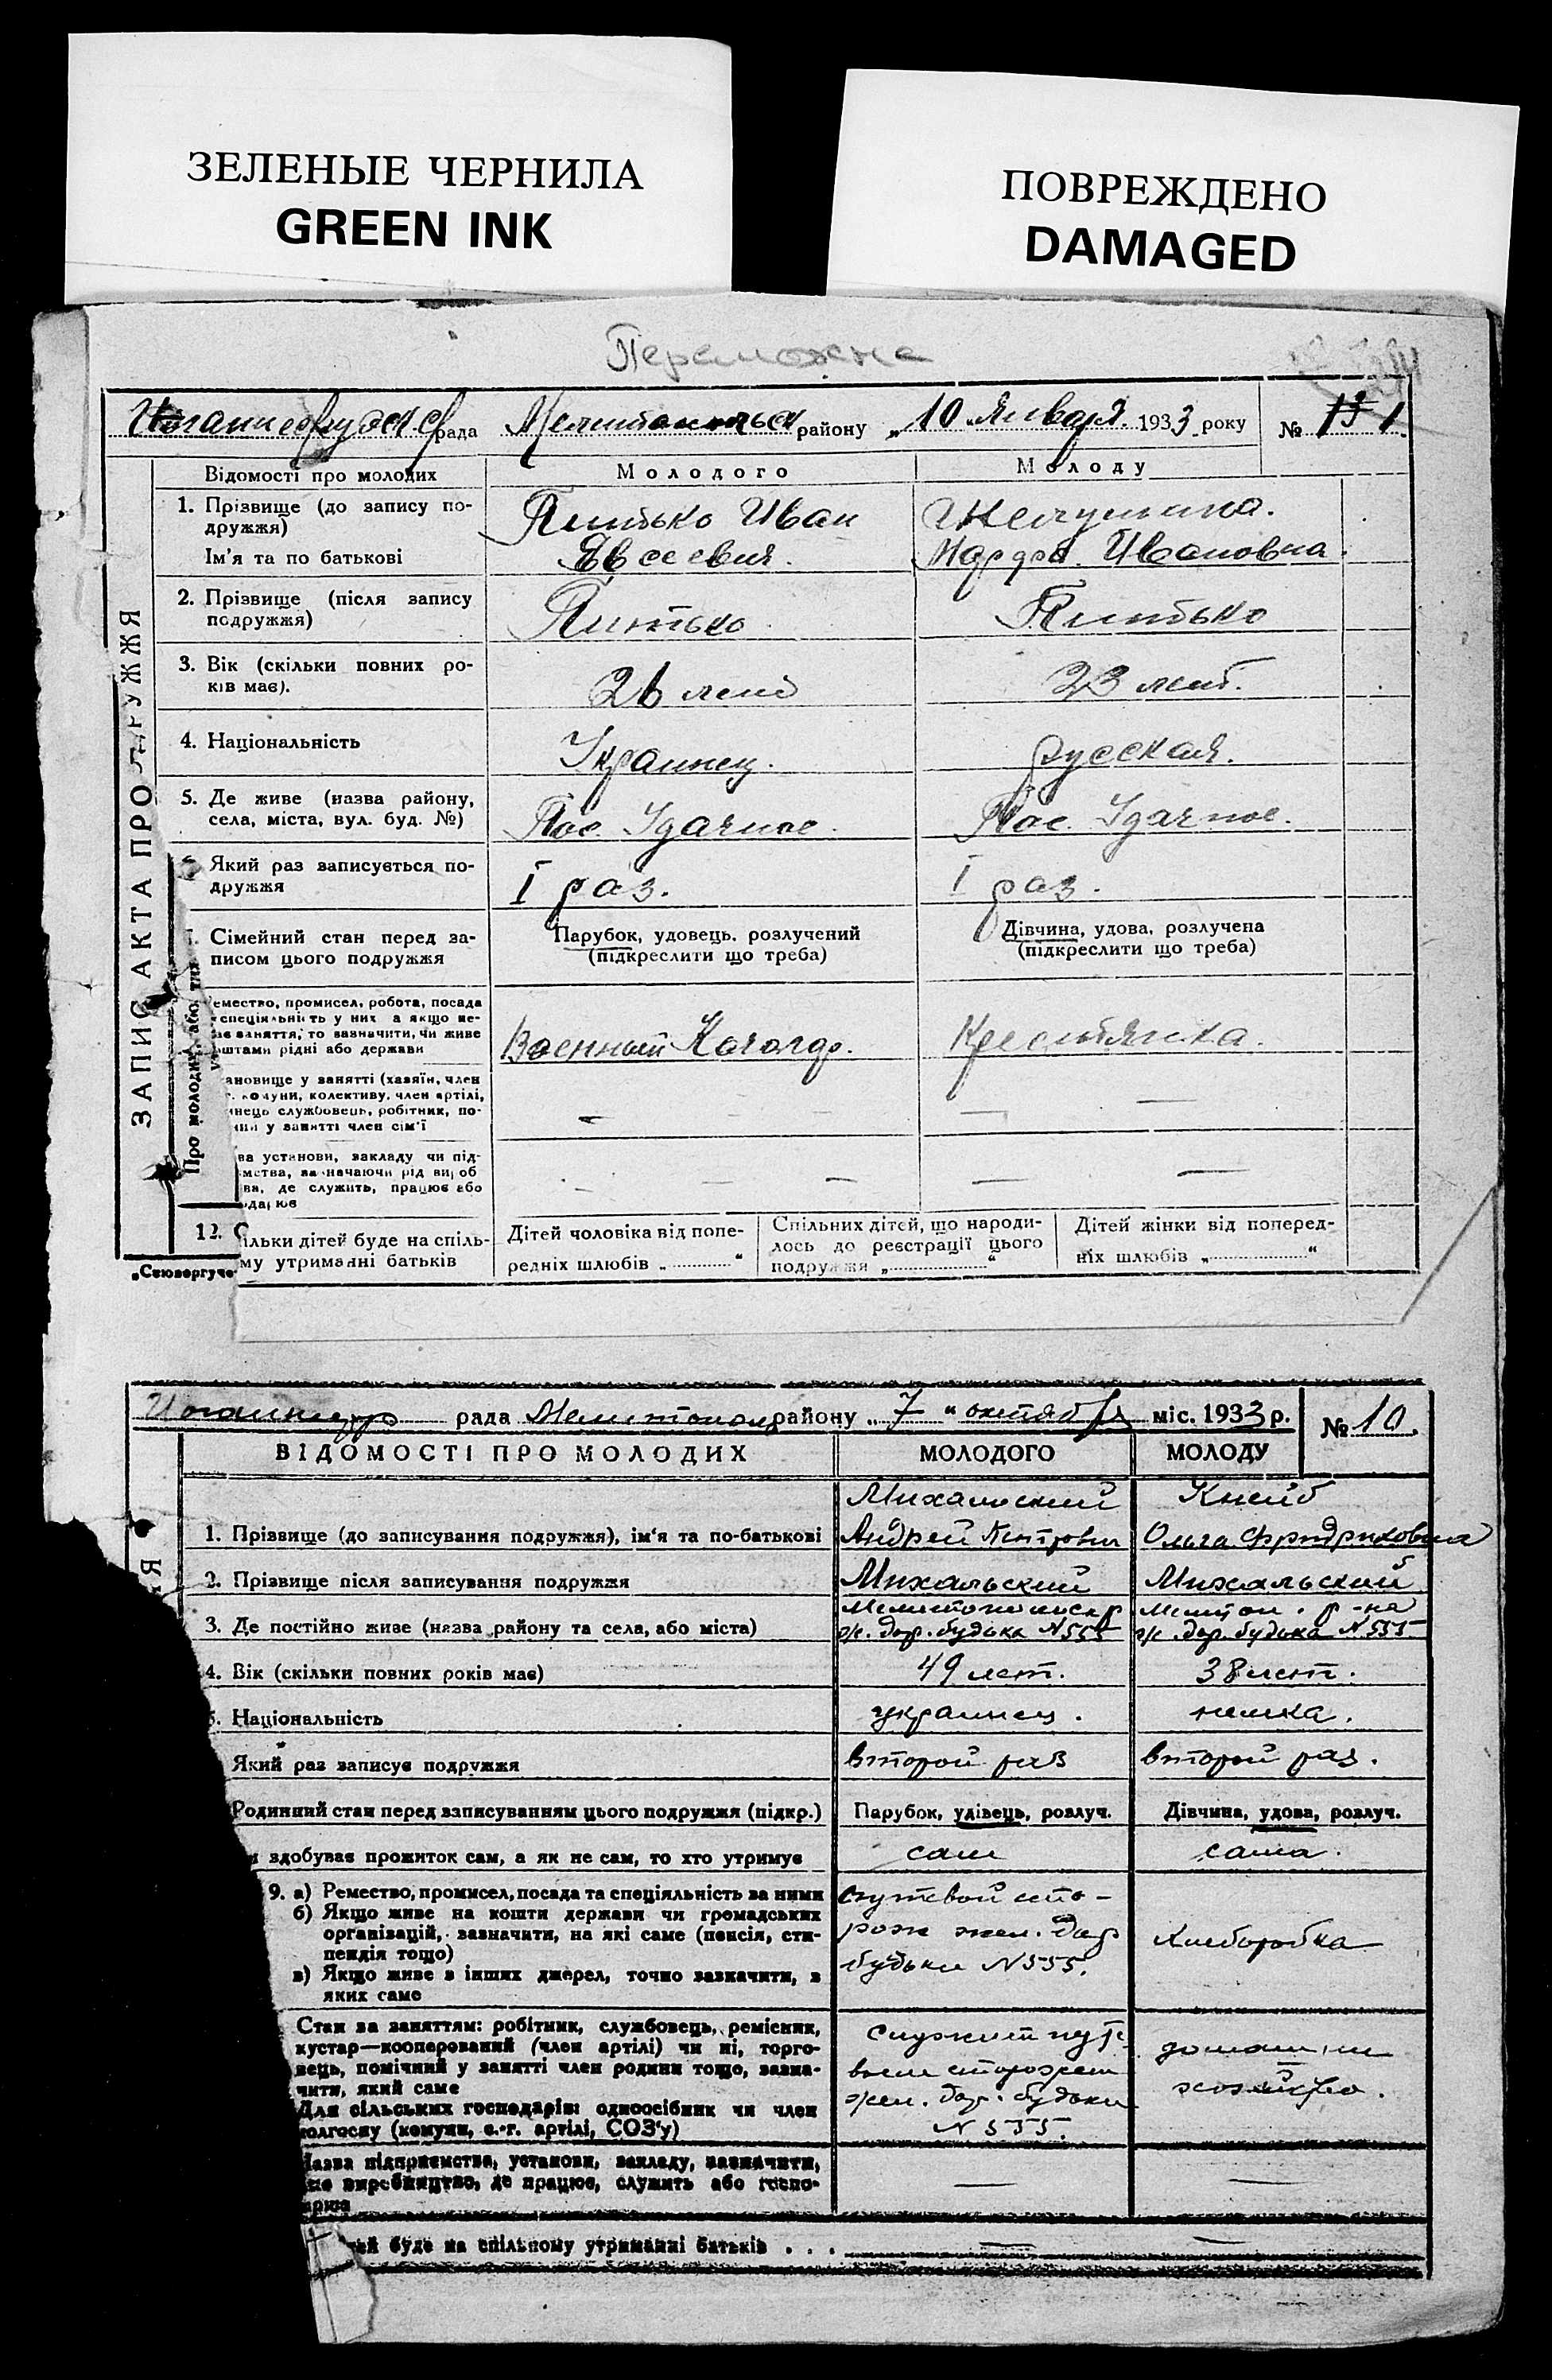 ЗЕЛЕНЫЕ ЧЕРНИЛА
GREEN INK
ПОВРЕЖДЕНО
DAMAGED
рада Мелитопольск району „10 Января 1933 року № 1.
Відомості про молодих Молодого Молоду
1. Прізвище (до запису по-
дружжя)
Ім'я та по батькові
Питько Иван
Евсеевич.
Ивановна.
2. Прізвище (після запису
подружжя)
Питько
Питько
3. Вік (скільки повних ро-
ків має).
26 лет
23 лет.
4. Національність
Украинец.
русская.
5. Де живе (назва району,
села, міста, вул. буд. №)
Пос. Удачное.
Пос. Удачное.
Який раз записується по-
дружжя
I раз.
I раз.
Сімейний стан перед за-
писом цього подружжя
Парубок, удовець, розлучений
(підкреслити що треба)
Дівчина, удова, розлучена
(підкреслити що треба)
емество, промисел, робота, посада
спеціяльність у них а якщо не-
ає заняття, то зазначити, чи живе
штами рідні або держави
Военный
Крестьянка.
ановище у занятті (хазяїн, член
комуни, колективу, член артілі,
инець службовець, робітник, по-
у занятті член сім'ї
— — —
ва установи, закладу чи під-
мства, зазначаючи рід вироб
ва, де служить, працює або
— — —
12. С
ільки дітей буде на спіль-
му утриманні батьків
Дітей чоловіка від попе-
редніх шлюбів „ “
Спільних дітей, що народи-
лось до реєстрації цього
подружжя „ “
Дітей жінки від поперед-
ніх шлюбів „ “
ЗАПИС АКТА ПРО ПОДРУЖЖЯ
Про молодих, або тих
рада Мелитопол району „7“ октября міс. 1933 р. № 10.
ВІДОМОСТІ ПРО МОЛОДИХ МОЛОДОГО МОЛОДУ
1. Прізвище (до записування подружжя), ім'я та по-батькові
Михальский
Андрей Петрович
Кнейб
Ольга Фридриховна
2. Прізвище після записування подружжя Михальский Михальский
3. Де постійно живе (назва району та села, або міста)
Мелитопольск р
ж. дор. будька N 555
Мелитоп. р-на
ж. дор. будька N 555
4. Вік (скільки повних років має) 49 лет. 38 лет.
5. Національність украинец. немка.
Який раз записує подружжя второй раз второй раз.
Родинний стан перед записуванням цього подружжя (підкр.) Парубок, удівець, розлуч. Дівчина, удова, розлуч.
здобуває прожиток сам, а як не сам, то хто утримує сам сама.
9. а) Ремество, промисел, посада та спеціяльність за ними
б) Якщо живе на кошти держави чи громадських
організацій, зазначити, на які саме (пенсія, сти-
пендія тощо)
в) Якщо живе з інших джерел, точно зазначити, з
яких саме
путевой сто-
рож жел. дор
будьки N 555.
Хлеборобка
Стан за заняттям: робітник, службовець, ремісник,
кустар—кооперований (член артілі) чи ні, торго-
вець, помічний у занятті член родини тощо, зазна-
чити, який саме
Для сільських господарів: одноосібник чи член
колгоспу (комуни, с.-г. артілі, СОЗ'у)
служит путе
вым сторожем
жел. дор. будьки
N 555.
домашнее
хозяйство.
Назва підприємства, установи, закладу, зазначити,
яке виробництво, де працює, служить або госпо-
— —
ей буде на спільному утриманні батьків . . . — —